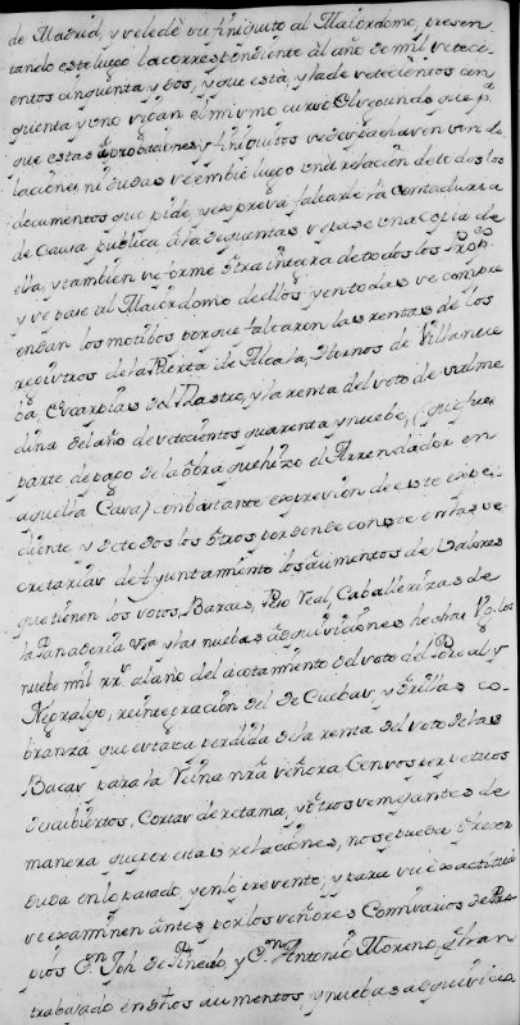 de Madrid, y se le dè su finiquito al Maiordomo, presen-
tando este luego la correspondiente al año de mil seteci-
entos cinquenta y dos, y que està, y la de setecientos cin
quenta y uno sigan el mismo curso: El segundo que p.ª
que estas aprobaciones y finiquitos se despachasen sin di-
laciones, ni dudas se embie luego una relacion de todos los
documentos que pide, y expresa faltarle la Contaduria
de Causa publica à la de quentas se pase una Copia de
ella, y tambien se forme òtra integra de todos los Prop.ˢ
y se pase al Maiordomo de ellos: y en todas se compre
endan los motibos por que faltaron las rentas de los
registros de la Puerta de Alcala, Hornos de Villanue
ba, Escarpias del Rastro, y la renta del soto de salme
dina del año de setecientos quarenta y nuebe, (que fue
parte de pago de la òbra que hizo el Arrendador en
aquella Casa) con bastante expresion de este expe-
diente, y de todos los òtros por donde conste en las se
cretarias de Ayuntamiento los aumentos de Valores
que tienen los sotos, Baxas, Peso Real, Caballerizas de
la Panaderia V.ª y las nuebas adquisiciones hechas V.g. los
nuebe mil rr.ˢ al año del acotamiento del soto del Porcal y
Negralejo, reintegracion del de Cuebas, y òrillas co-
branza que estaba perdida de la renta del soto de las
Bacas para la Reina nrà señora, Censos perpetuos
descubiertos, Cortas de retama, y òtros semejantes de
manera que por estas relaciones, no se pueda òfrecer
duda en lo pasado, y en lo presente, y para su exactitud
se examinen àntes por los señores Comisarios de Pro
pios D.ⁿ Joh. de Pinedo, y D.ⁿ Antonio Moreno, q̃ han
trabajado en dhos aumentos, y nuebas adquisicio